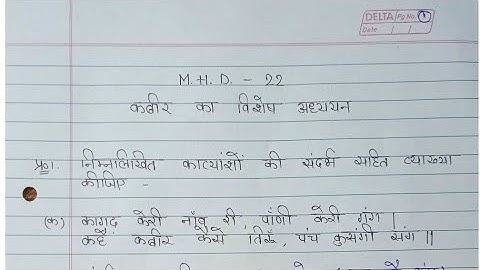 DELTA Pg No. 1
Date / /
M.H.D. - 22
कबीर का विशेष अध्ययन
प्र०1. निम्नलिखित काव्यांशों की संदर्भ सहित व्याख्या
कीजिए -
(क) कागद केरी नाँव री, पांणी केरी गंग |
कहै कबीर कैसे तिरूँ, पंच कुसंगी संग ||